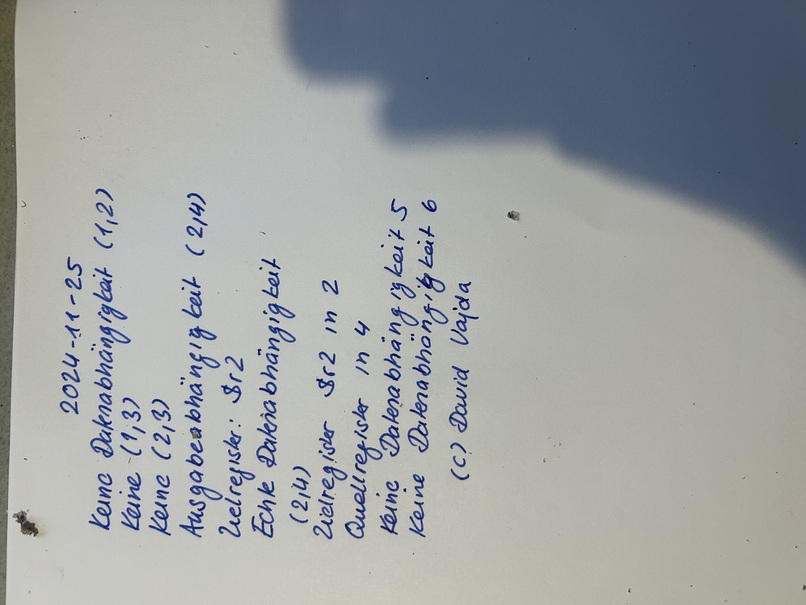 2024-11-25
Keine Datenabhängigkeit (1,2)
Keine (1,3)
Keine (2,3)
Ausgabeabhängigkeit (2,4)
Zielregister: $r2
Echte Datenabhängigkeit
(2,4)
Zielregister $r2 in 2
Quellregister in 4
Keine Datenabhängigkeit 5
Keine Datenabhängigkeit 6
(C) David Vajda